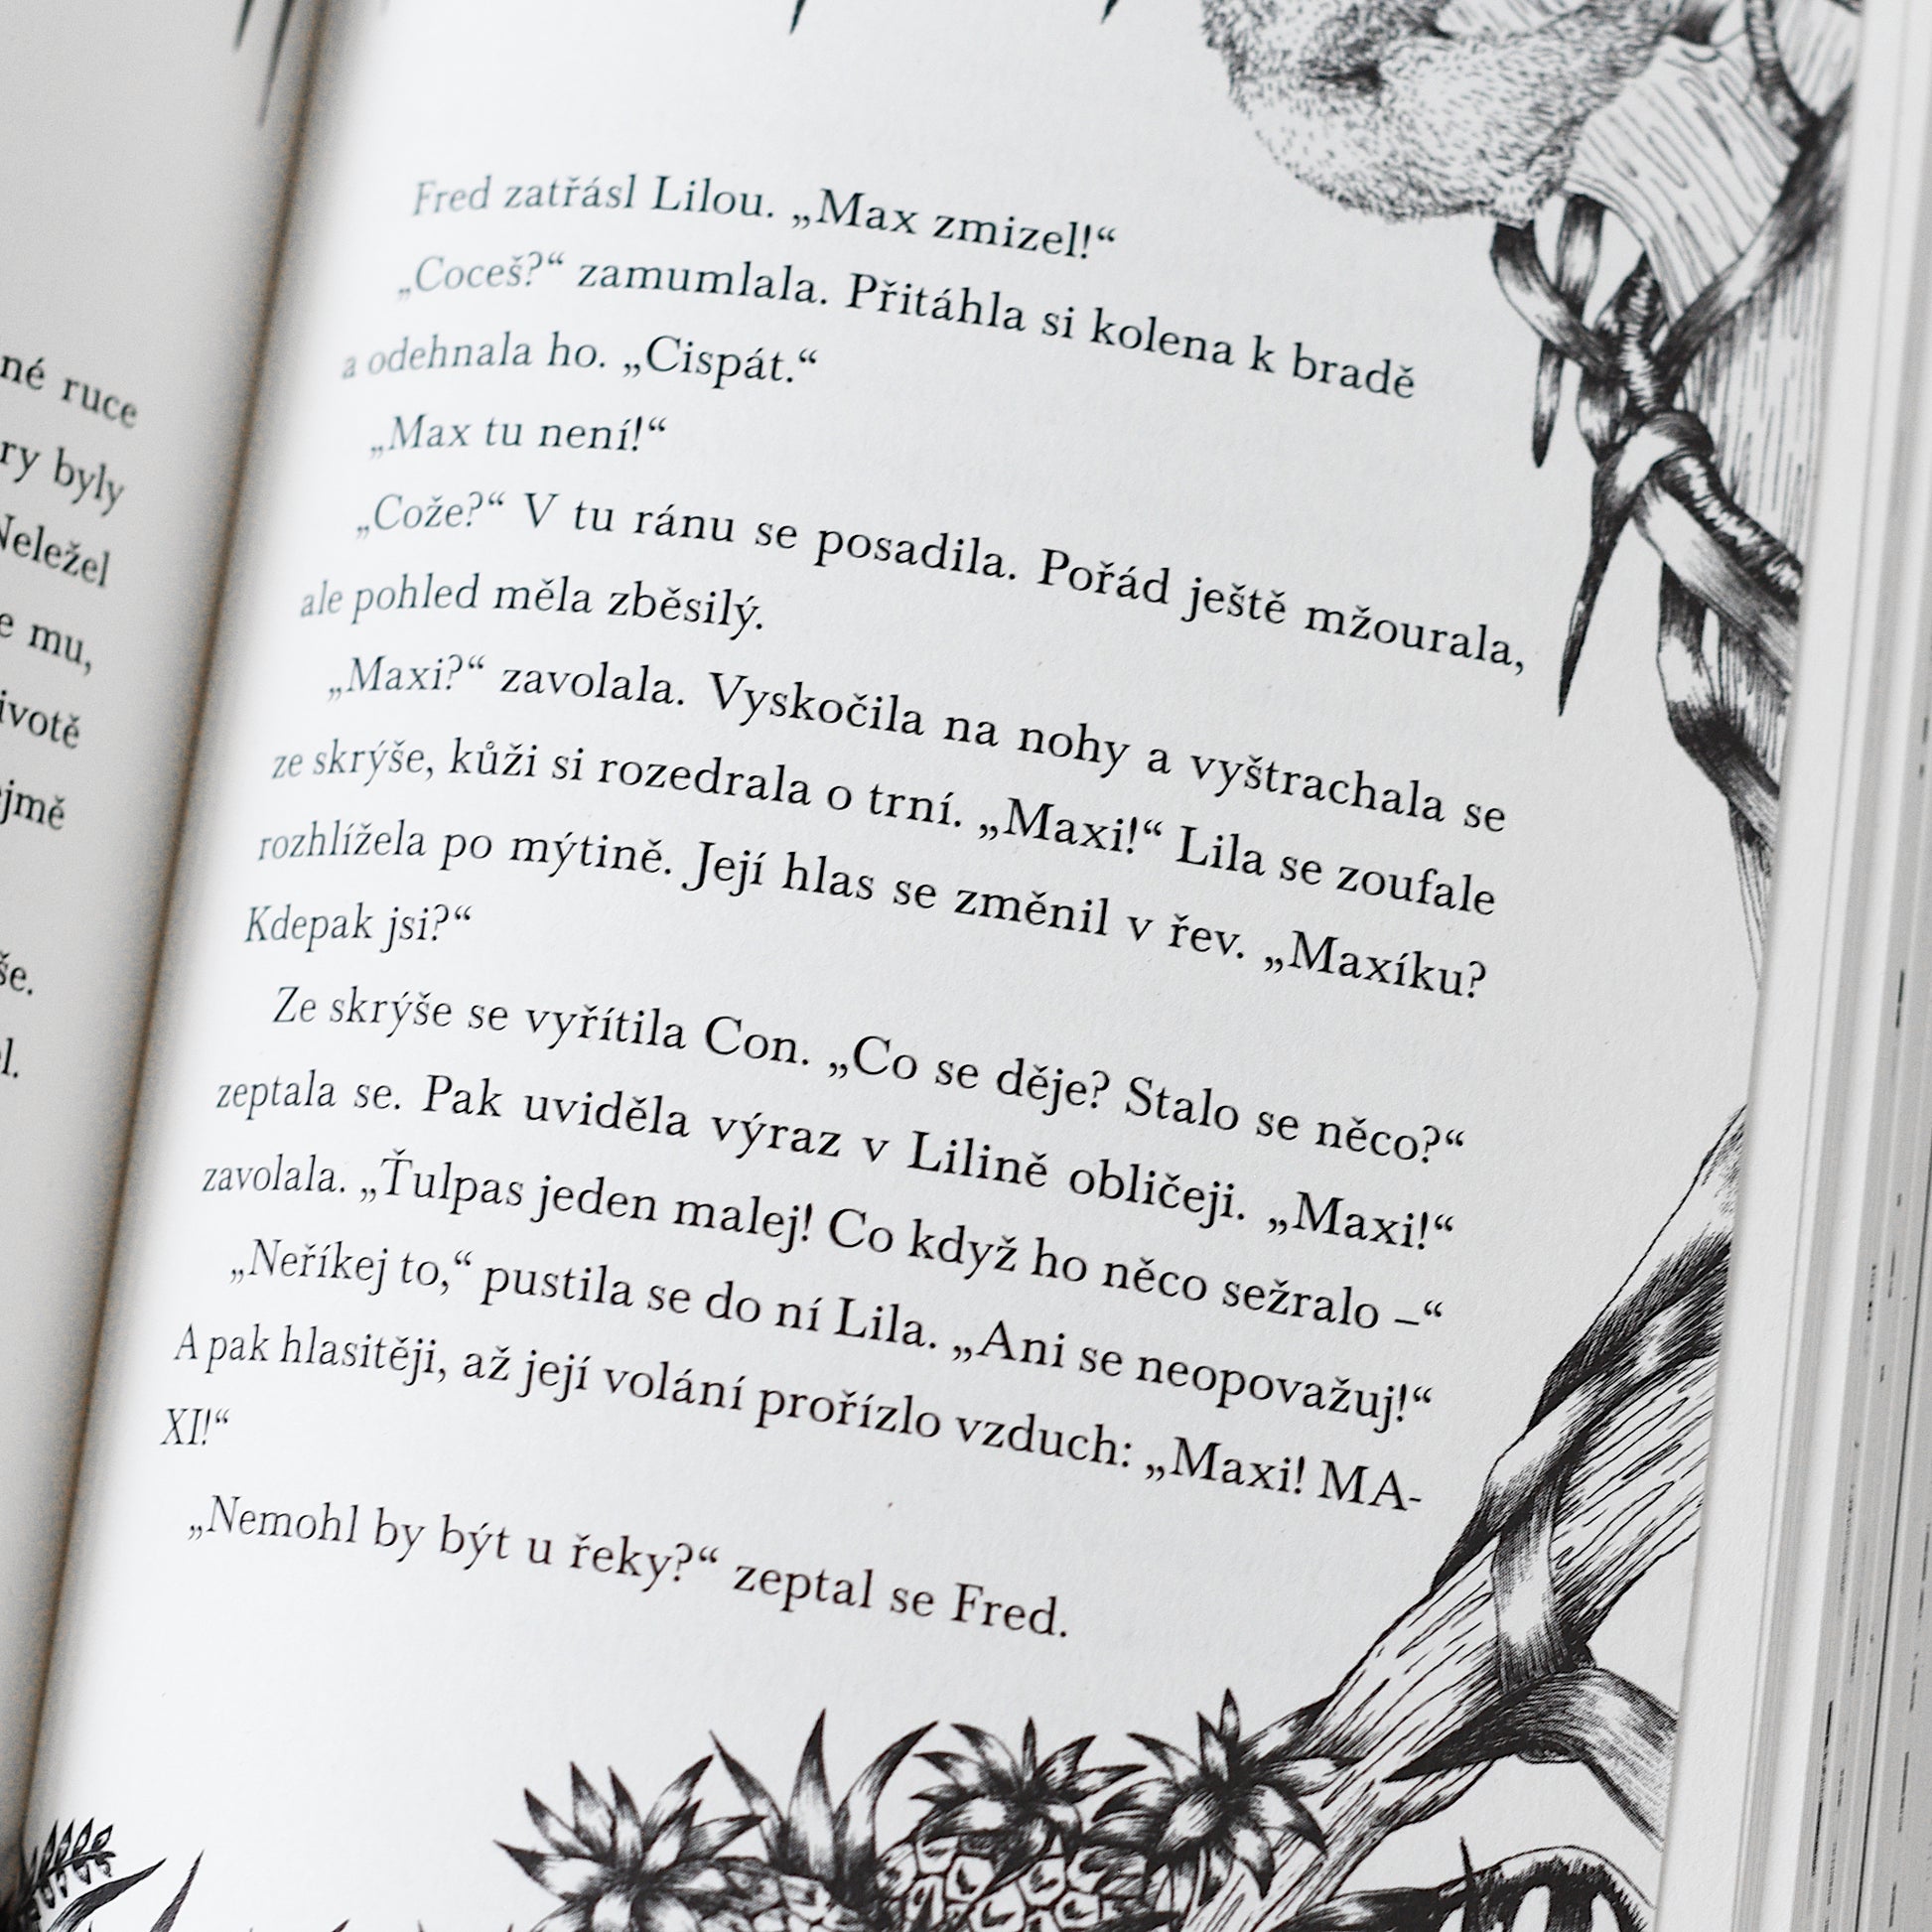 né ruce
ry byly
Neležel
e mu,
ivotě
jmě
še.
l.
Fred zatřásl Lilou. „Max zmizel!“
„Coceš?“ zamumlala. Přitáhla si kolena k bradě
a odehnala ho. „Cispát.“
„Max tu není!“
„Cože?“ V tu ránu se posadila. Pořád ještě mžourala,
ale pohled měla zběsilý.
„Maxi?“ zavolala. Vyskočila na nohy a vyštrachala se
ze skrýše, kůži si rozedrala o trní. „Maxi!“ Lila se zoufale
rozhlížela po mýtině. Její hlas se změnil v řev. „Maxíku?
Kdepak jsi?“
Ze skrýše se vyřítila Con. „Co se děje? Stalo se něco?“
zeptala se. Pak uviděla výraz v Lilině obličeji. „Maxi!“
zavolala. „Ťulpas jeden malej! Co když ho něco sežralo –“
„Neříkej to,“ pustila se do ní Lila. „Ani se neopovažuj!“
A pak hlasitěji, až její volání prořízlo vzduch: „Maxi! MA-
XI!“
„Nemohl by být u řeky?“ zeptal se Fred.